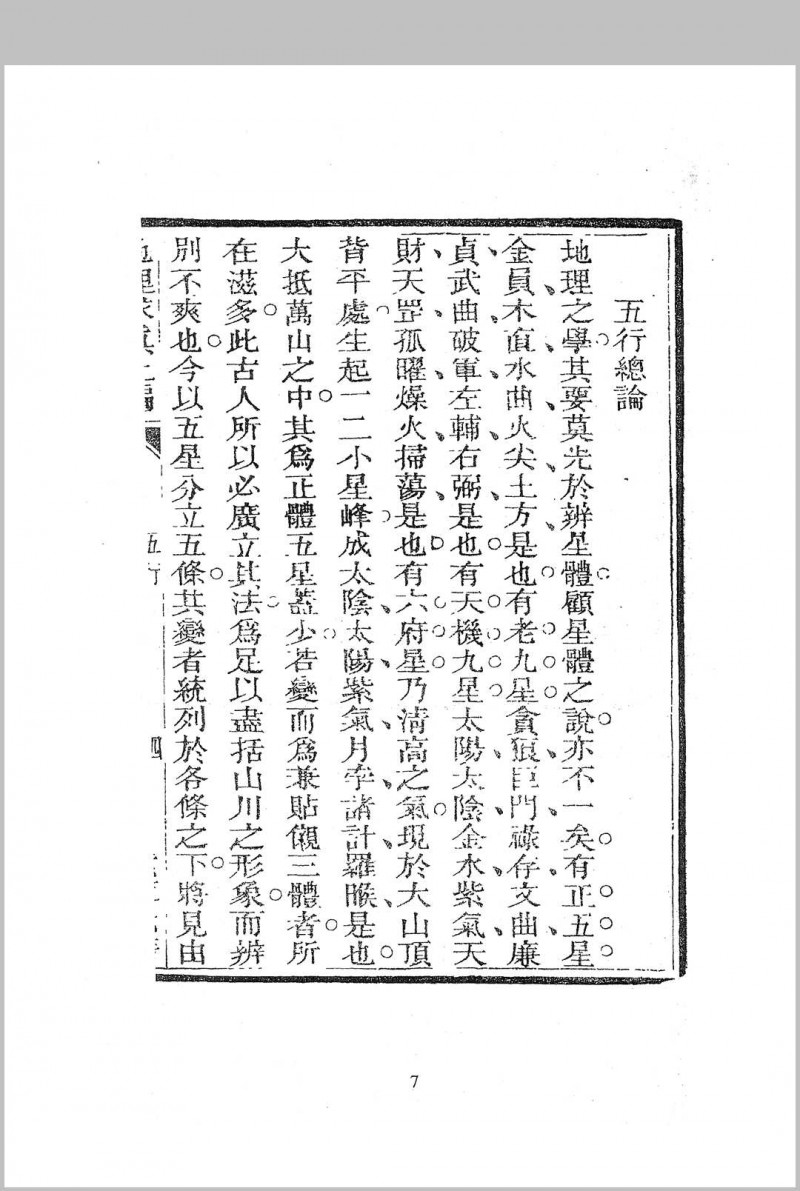 五行總論
地理之學其要莫先於辨星體顧星體之說亦不一矣有正五星
金員木直水曲火尖土方是也有老九星貪狼巨門祿存文曲廉
貞武曲破軍左輔右弼是也有天機九星太陽太陰金水紫氣天
財天罡孤曜燥火掃蕩是也有六府星乃清高之氣現於大山頂
背平處生起一二小星峰成太陰太陽紫氣月孛諸計羅㬋是也
大抵萬山之中其爲正體五星蓋少若變而爲兼貼儭三體者所
在滋多此古人所以必廣立其法爲足以盡括山川之形象而辨
別不爽也今以五星分立五條其變者統列於各條之下將見由
五行
四
7